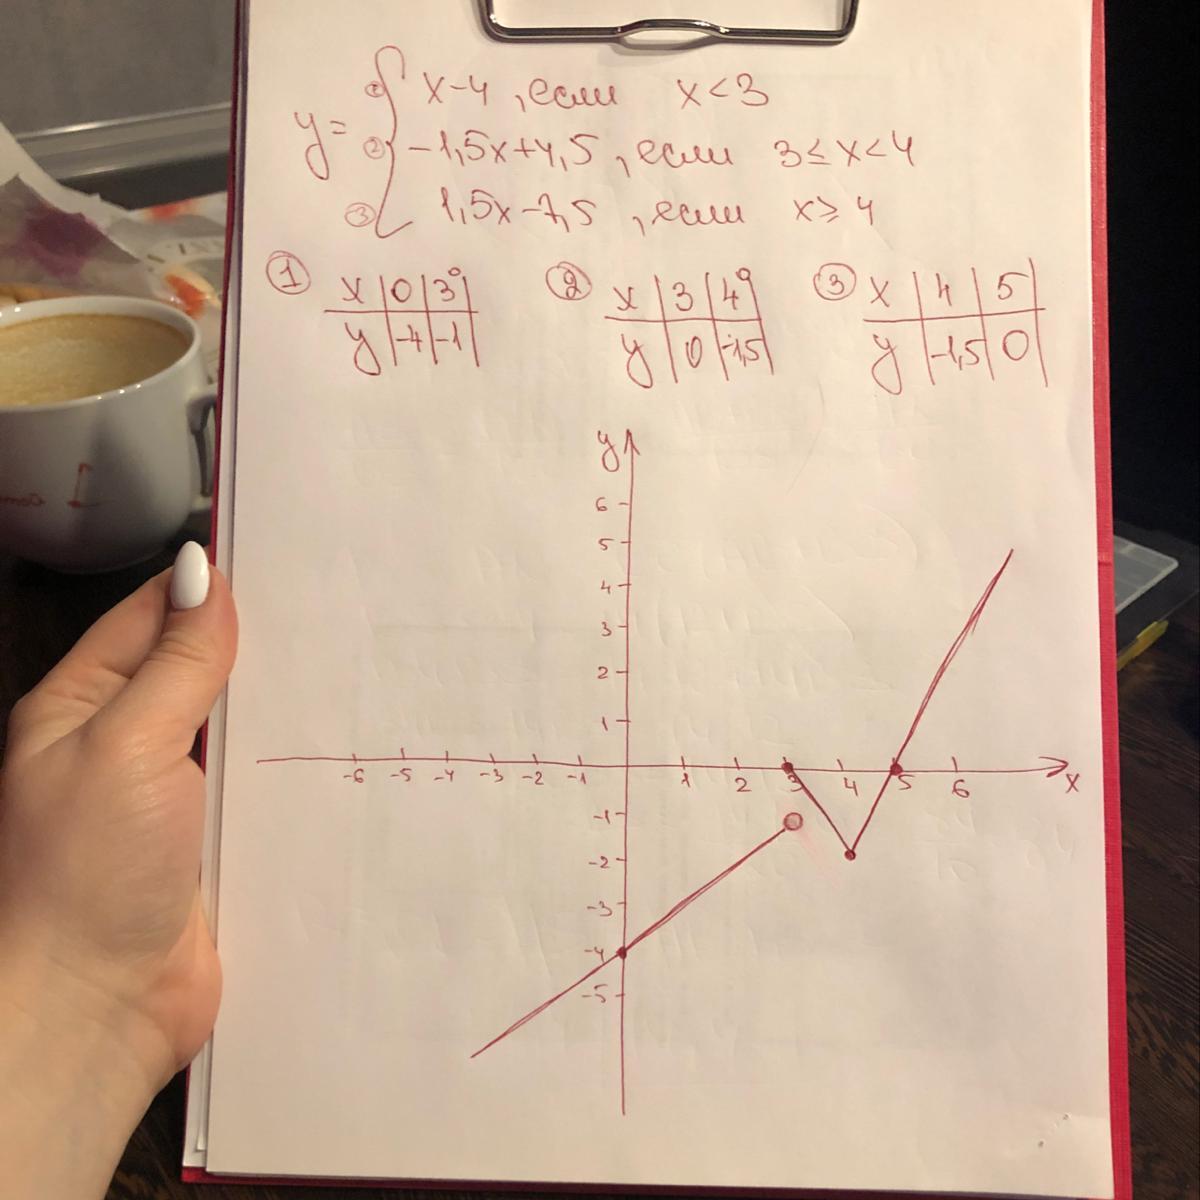 y= { ① x-4, если x<3
② -1,5x+4,5, если 3≤x<4
③ 1,5x-7,5, если x≥4
① x | 0 | 3° |
y | -4 | -1 |
② x | 3 | 4° |
y | 0 | -1,5 |
③ x | 4 | 5 |
y | -1,5 | 0 |
y
6
5
4
3
2
1
-6 -5 -4 -3 -2 -1 1 2 3 4 5 6 x
-1
-2
-3
-4
-5